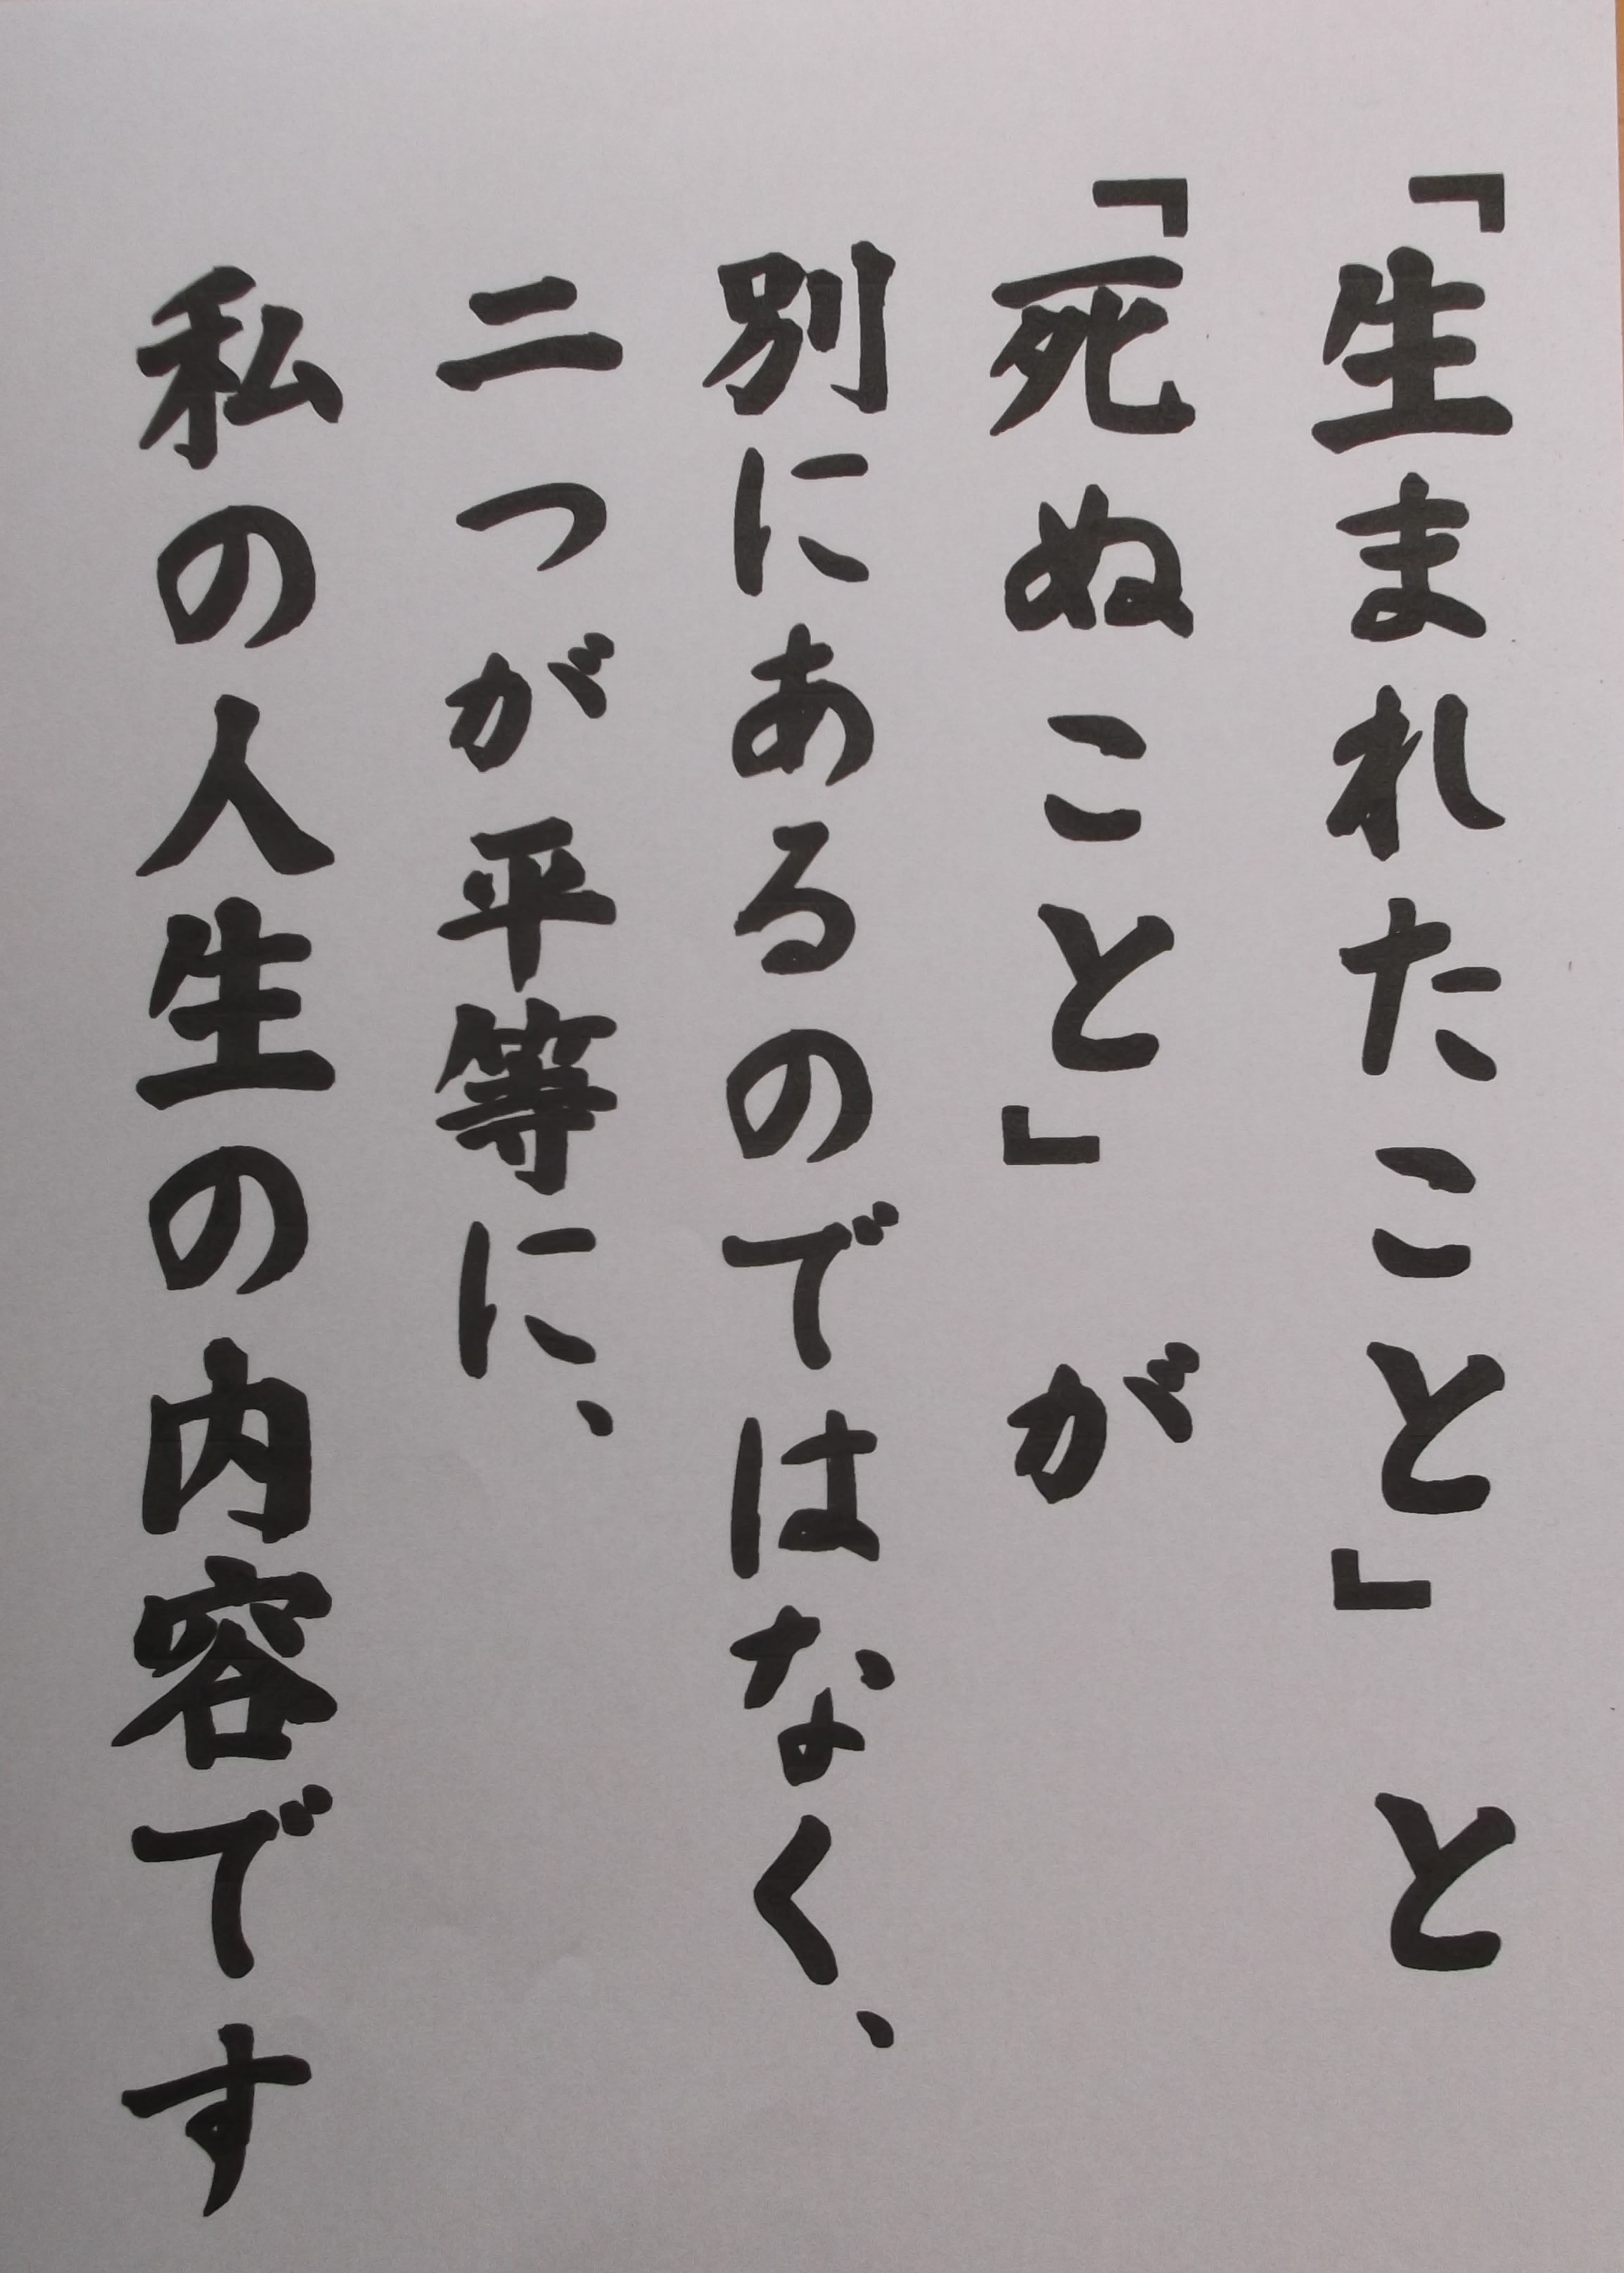 「生まれたこと」 と
「死ぬこと」 が
別にあるのではなく、
二つが平等に、
私の人生の内容です